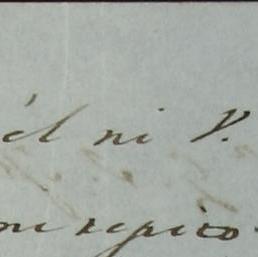 él ni V.
me repito